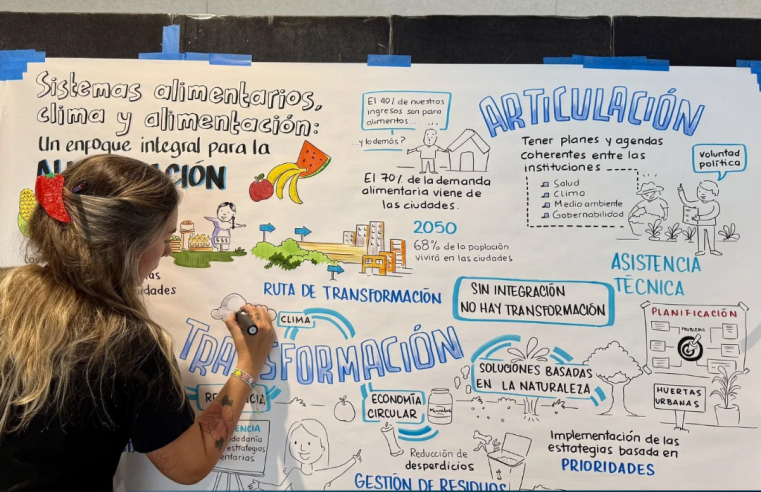 Sistemas alimentarios,
clima y alimentación:
Un enfoque integral para la
El 40% de nuestros
ingresos son para
alimentos...
...y lo demás?
El 70% de la demanda
alimentaria viene de
las ciudades.
2050
68% de la población
vivirá en las ciudades
RUTA DE TRANSFORMACIÓN
ARTICULACIÓN
Tener planes y agendas
coherentes entre las
instituciones
Salud
Clima
Medio ambiente
Gobernabilidad
voluntad
política
ASISTENCIA
TÉCNICA
SIN INTEGRACIÓN
NO HAY TRANSFORMACIÓN
PLANIFICACIÓN
PROBLEMA
CLIMA
TRANSFORMACIÓN
SOLUCIONES BASADAS
EN LA NATURALEZA
HUERTAS
URBANAS
ECONOMÍA
CIRCULAR
Reducción de
desperdicios
GESTIÓN DE RESIDUOS
Implementación de las
estrategias basada en
PRIORIDADES